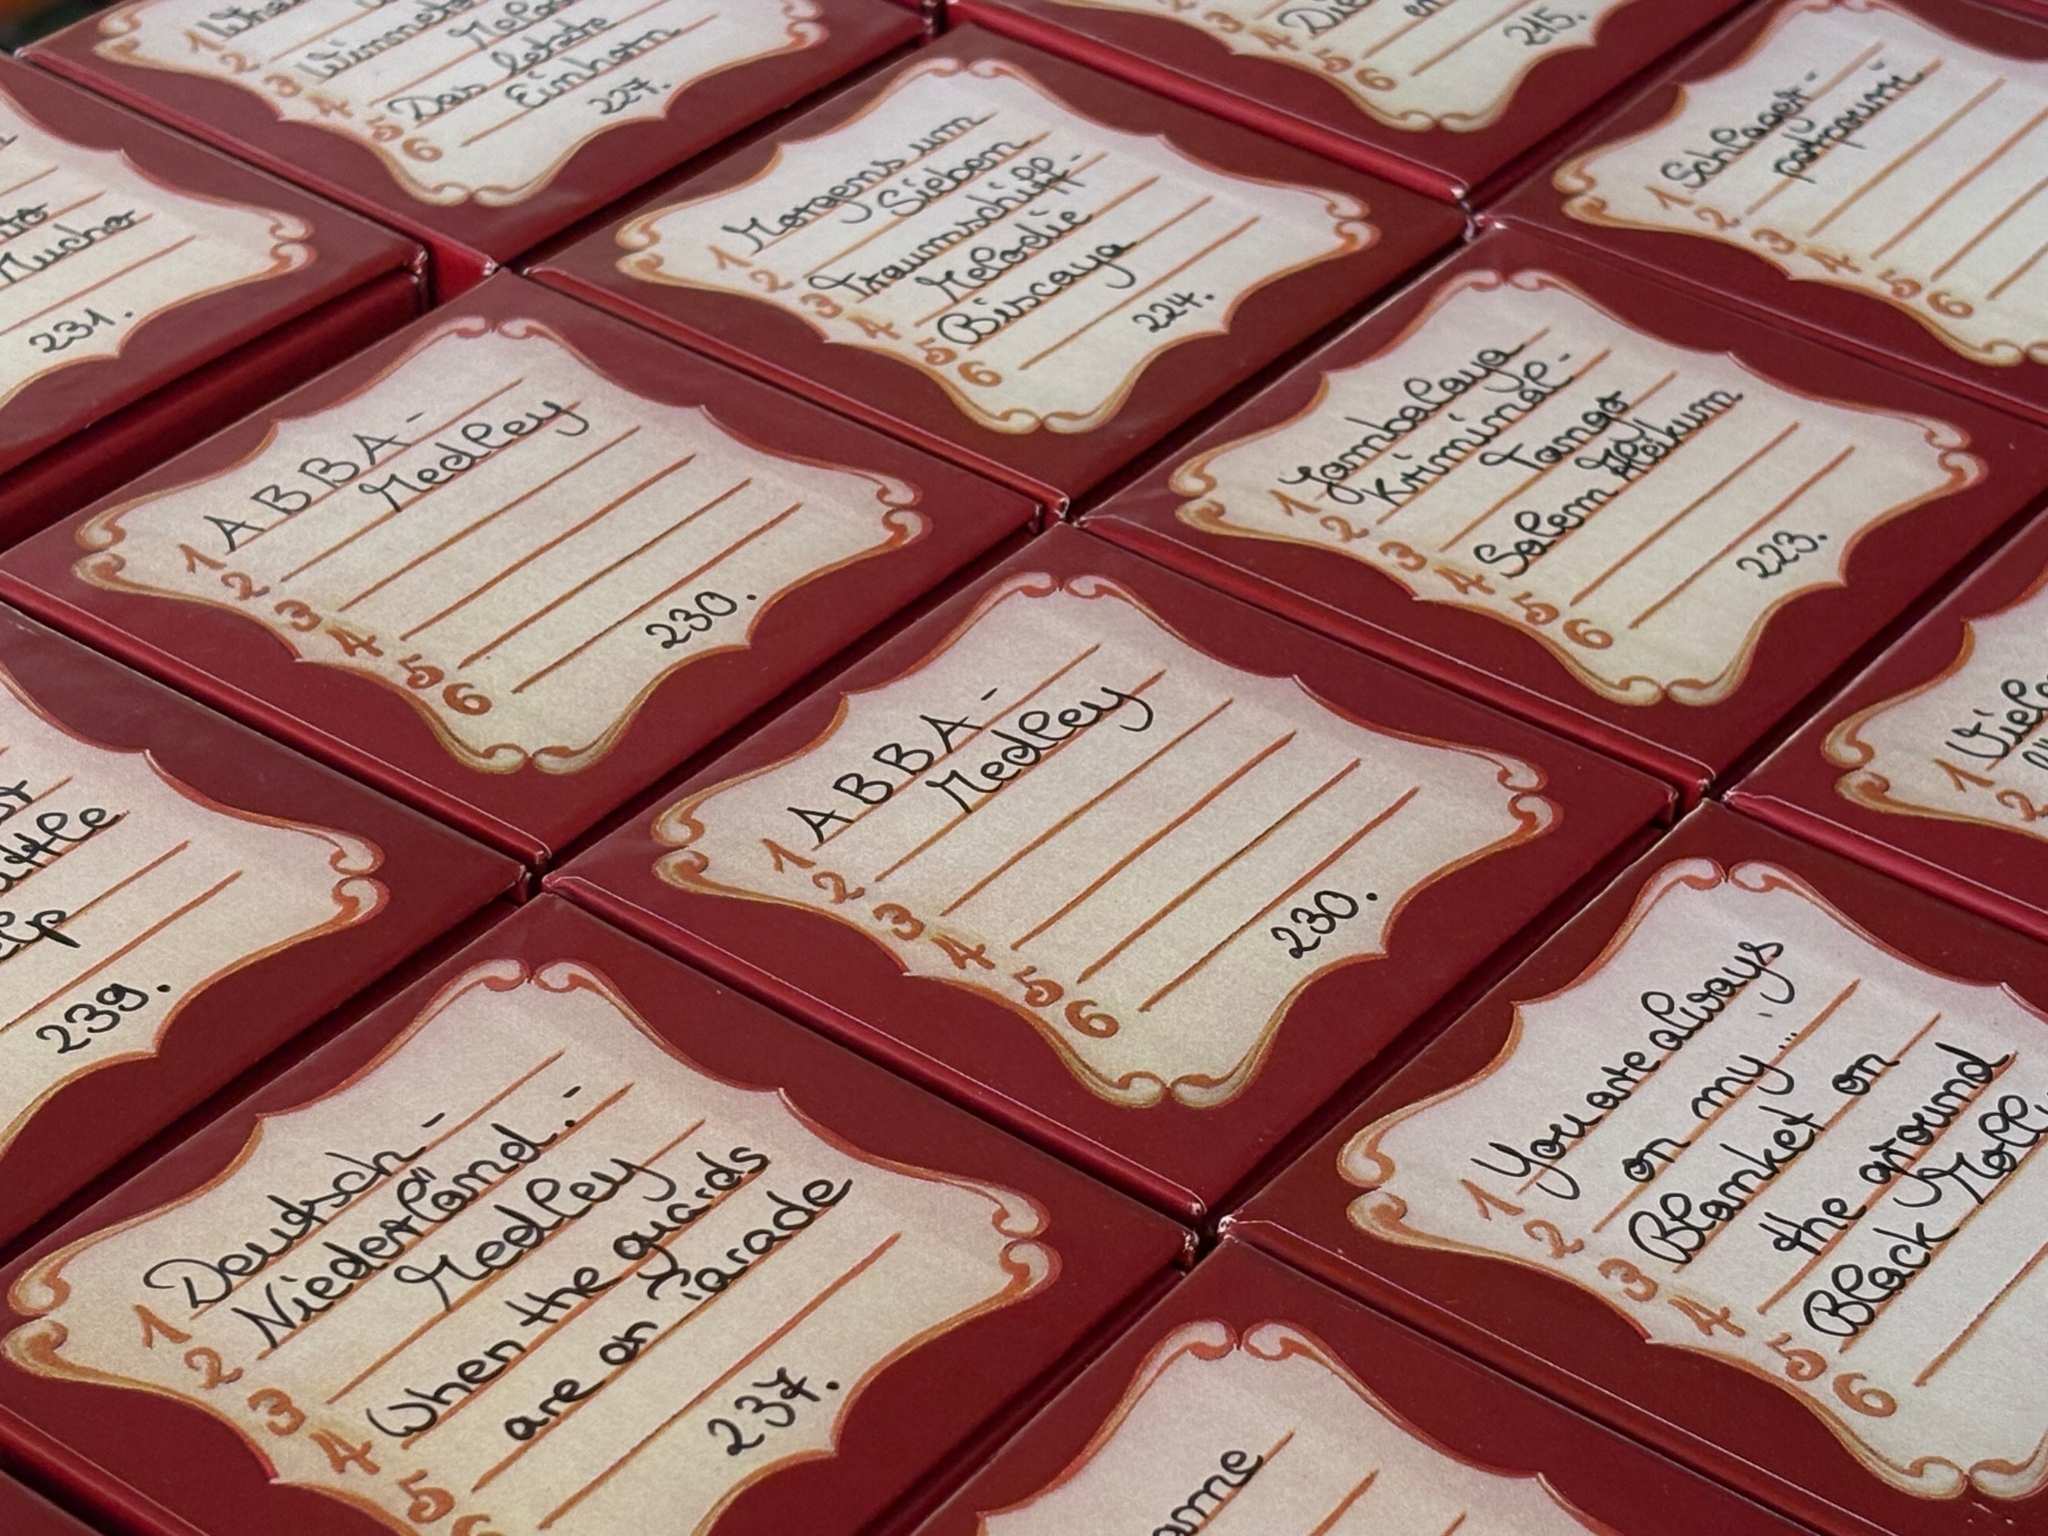 1
2
3 Winneto
4
5 Das letzte
6 Einhorn
227.
3
4
5
6
215.
1 Schlager-
2 potpourri
3
4
5
6
Mucho
231.
1 Morgens um
2 Sieben
3 Traumschiff-
4 Melodie
5 Biscaya
6
224.
1 Jambalaya
2 Kriminal-
3 Tango
4 Salem Aleikum
5
6
223.
1 ABBA-
2 Medley
3
4
5
6
230.
1 ABBA-
2 Medley
3
4
5
6
230.
1
2
239.
1 Deutsch-
2 Niederländ.-
3 Medley
4 When the guards
5 are on Parade
6
237.
1 You are always
2 on my...
3 Blanket on
4 the ground
5 Black Moll
6